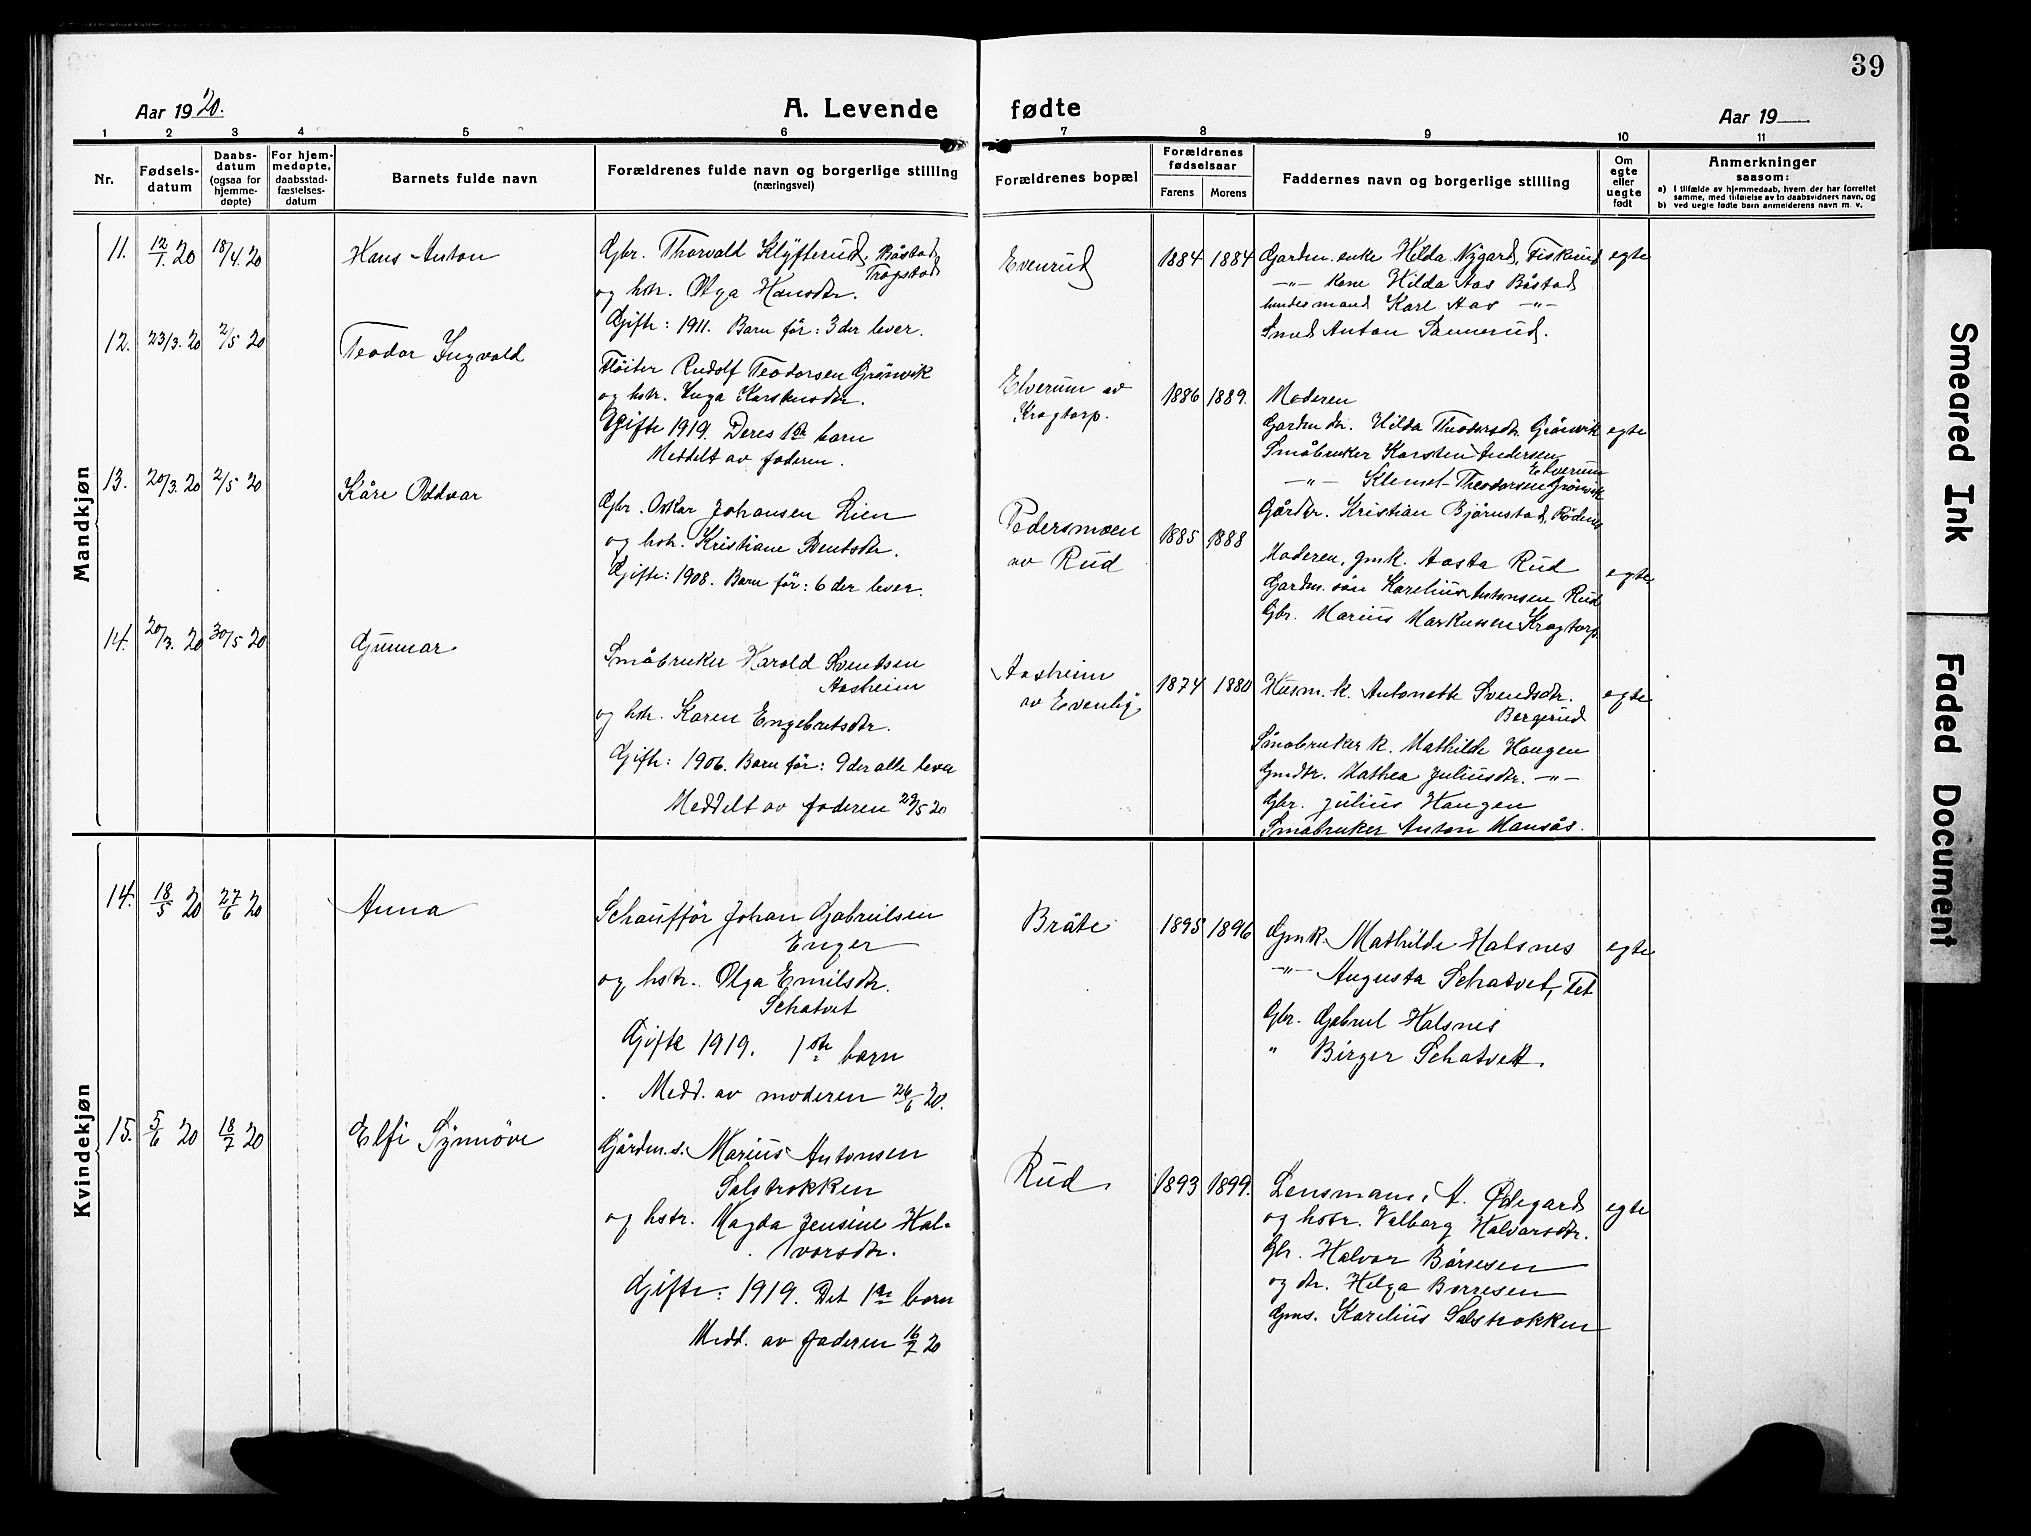 39
Aar 1920.
A. Levende fødte
Aar 19
1 2 3 4 5 6 7 8 9 10 11
Nr.
Fødsels-
datum
Daabs-
datum
(ogsaa for
hjemme-
døpte)
For hjem-
medøpte,
daabsstad-
fæstelses-
datum
Barnets fulde navn
Forældrenes fulde navn og borgerlige stilling
(næringsvei)
Forældrenes bopæl
Forældrenes
fødselsaar
Farens Morens
Faddernes navn og borgerlige stilling
Om
egte
eller
uegte
født
Anmerkninger
saasom:
a) I tilfælde av hjemmedaab, hvem der har forrettet
samme, med tilføielse av to daabsvidners navn, og
b) ved uegte fødte barn anmelderens navn m. v.
Mandkjøn
11. 12/1. 20 18/4. 20 Hans Anton
Gbr. Thorvald Klyfterud, Båstad,
Trøgstad
og hstr. Olga Hansdtr.
Gifte: 1911. Barn før: 3 der lever.
Evenrud 1884 1884
Gardm. enke Hilda Nygard, Fiskerud
-"- kone Hilda Aas Båstad
Landesmand Karl Aas -"-
Smed Anton Sannerud.
egte
12. 23/3. 20 2/5 20 Teodor Ingvald
Fløiter Rudolf Teodorsen Grønvik
og hstr. Inga Karstensdtr.
Gifte 1919. Deres 1ste barn
Meddelt av faderen.
Elverum av
Kragtorp.
1886 1889.
Moderen
Gardm. dtr. Hilda Theodorsdtr. Grønvik
Småbruker Karsten Andersen
Elverum
-"- Klemet Theodorsen Grønvik
Gårdbr. Kristian Bjørnstad, Rødenes
egte
13. 20/3. 20 2/5 20 Kåre Oddvar
Gbr. Oskar Johansen Lien
og hstr. Kristiane Bentsdtr.
Gifte: 1908. Barn før: 6 der lever.
Pedersmoen
av Rud
1885 1888
Moderen, gmk. Aasta Rud
Gardm. søn Karelius Antonsen Rud
Gbr. Marius Markussen Kragtorp
egte
14. 20/3. 20 30/5 20 Gunnar
Småbruker Harald Svendsen
Aasheim
og hstr. Karen Engebretsdtr.
Gifte: 1906. Barn før: 9 der alle lever
Meddelt av faderen 29/5 20
Aasheim
av Evenby
1874 1880
Husm. k. Antonette Svendsdtr.
Bergerud
Småbruker k. Mathilde Haugen
Gmdtr. Mathea Juliusdtr. -"-
Gbr. Julius Haugen
Småbruker Anton Mansås.
egte
Kvindekjøn
14. 18/5 20 27/6 20 Anna
Schauffør Johan Gabrielsen
Enger
og hstr. Olga Emilsdtr.
Schatvet
Gifte 1919. 1ste barn
Medd. av moderen 26/6 20.
Bråte 1895 1896
Gmk. Mathilde Halsnes
-"- Augusta Schatvet, Fet
Gbr. Gabriel Halsnes
" Birger Schatvet.
egte
15. 5/6 20 18/7 20 Elfi Synnøve
Gårdm. s. Marius Antonsen
Salstrokken
og hstr. Magda Jensine Hal-
vorsdtr.
Gifte: 1919. Det 1ste barn
Medd. av faderen 16/7 20
Rud 1893 1899.
Lensmann A. Ødegard
og hstr. Valborg Halvorsdtr.
Gbr. Halvor Børresen
og dtr. Helga Børresen
Gms. Karelius Salstrokken
egte
Smeared Ink
Faded Document